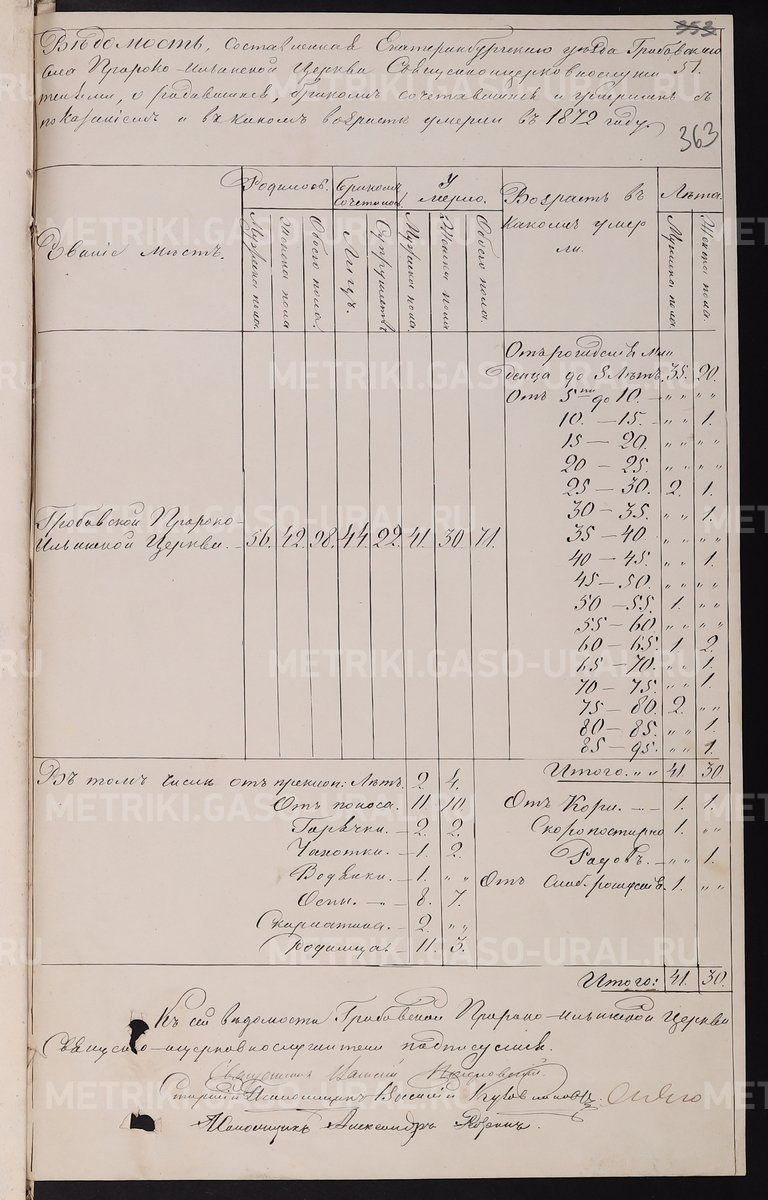 353
363
Вѣдомость, составленная Екатеринбургскаго уѣзда Гробовскаго
села Пророко-Ильинской Церкви Священноцерковнослужи
телями, о родившихся, бракомъ сочетавшихся и умершихъ съ
показаніемъ и въ какомъ возрастѣ умерли въ 1872 году.
Званіе мѣстъ.
Родилось.
Бракомъ сочеталось
Умерло.
Возрастъ въ какомъ умерли.
Лѣта.
Мужска пола.
Женска пола
Обоего пола.
Лицъ.
Супружествъ
Мужска пола.
Женска пола
Обоего пола.
Мужска пола.
Женска пола.
Отъ рожденія мла
денца до 5 Лѣтъ. 35. 20.
Отъ 5ти до 10. – „ „ „ „
10. – 15. – „ „ 1.
15 – 20. „ „ „ „
20 – 25. „ „ „ „
25 – 30. 2. 1.
30 – 35. „ „ 1.
35 – 40 „ „ „ „
40 – 45. „ „ 1.
45 – 50. „ „ „ „
50 – 55. 1. „ „
55 – 60 „ „ „ „
60 – 65. 1. 2.
65 – 70. „ „ 1.
70 – 75. „ „ 1.
75 – 80. 2. „ „
80 – 85. „ „ 1.
85 – 95. „ „ 1.
Итого. „ „ 41. 30
Гробовской Пророко-
Ильинской Церкви. – 56. 42. 98. 44. 22. 41. 30. 71.
Въ томъ числѣ отъ преклон: Лѣтъ. 2. 4.
Отъ поноса. 11. 10.
Горячки. – 2. 2.
Чахотки. – 1. 2.
Водянки. – 1. „ „
Оспы. – – 8. 7.
Скарлатина. – 2. „ „
Родимца. – 11. 3.
Отъ Кори. – – 1. 1.
Скоропостижно 1. „ „
Родовъ. – „ „ 1.
Отъ Слаб. рожденія. 1. „ „
Итого: 41. 30.
Къ сей вѣдомости Гробовской Пророко-Ильинской Церкви
Священно-церковнослужители подписуемся.
Священникъ
Старшій Псаломщикъ Василій
Псаломщикъ Александръ
METRIKI.GASO-URAL.RU